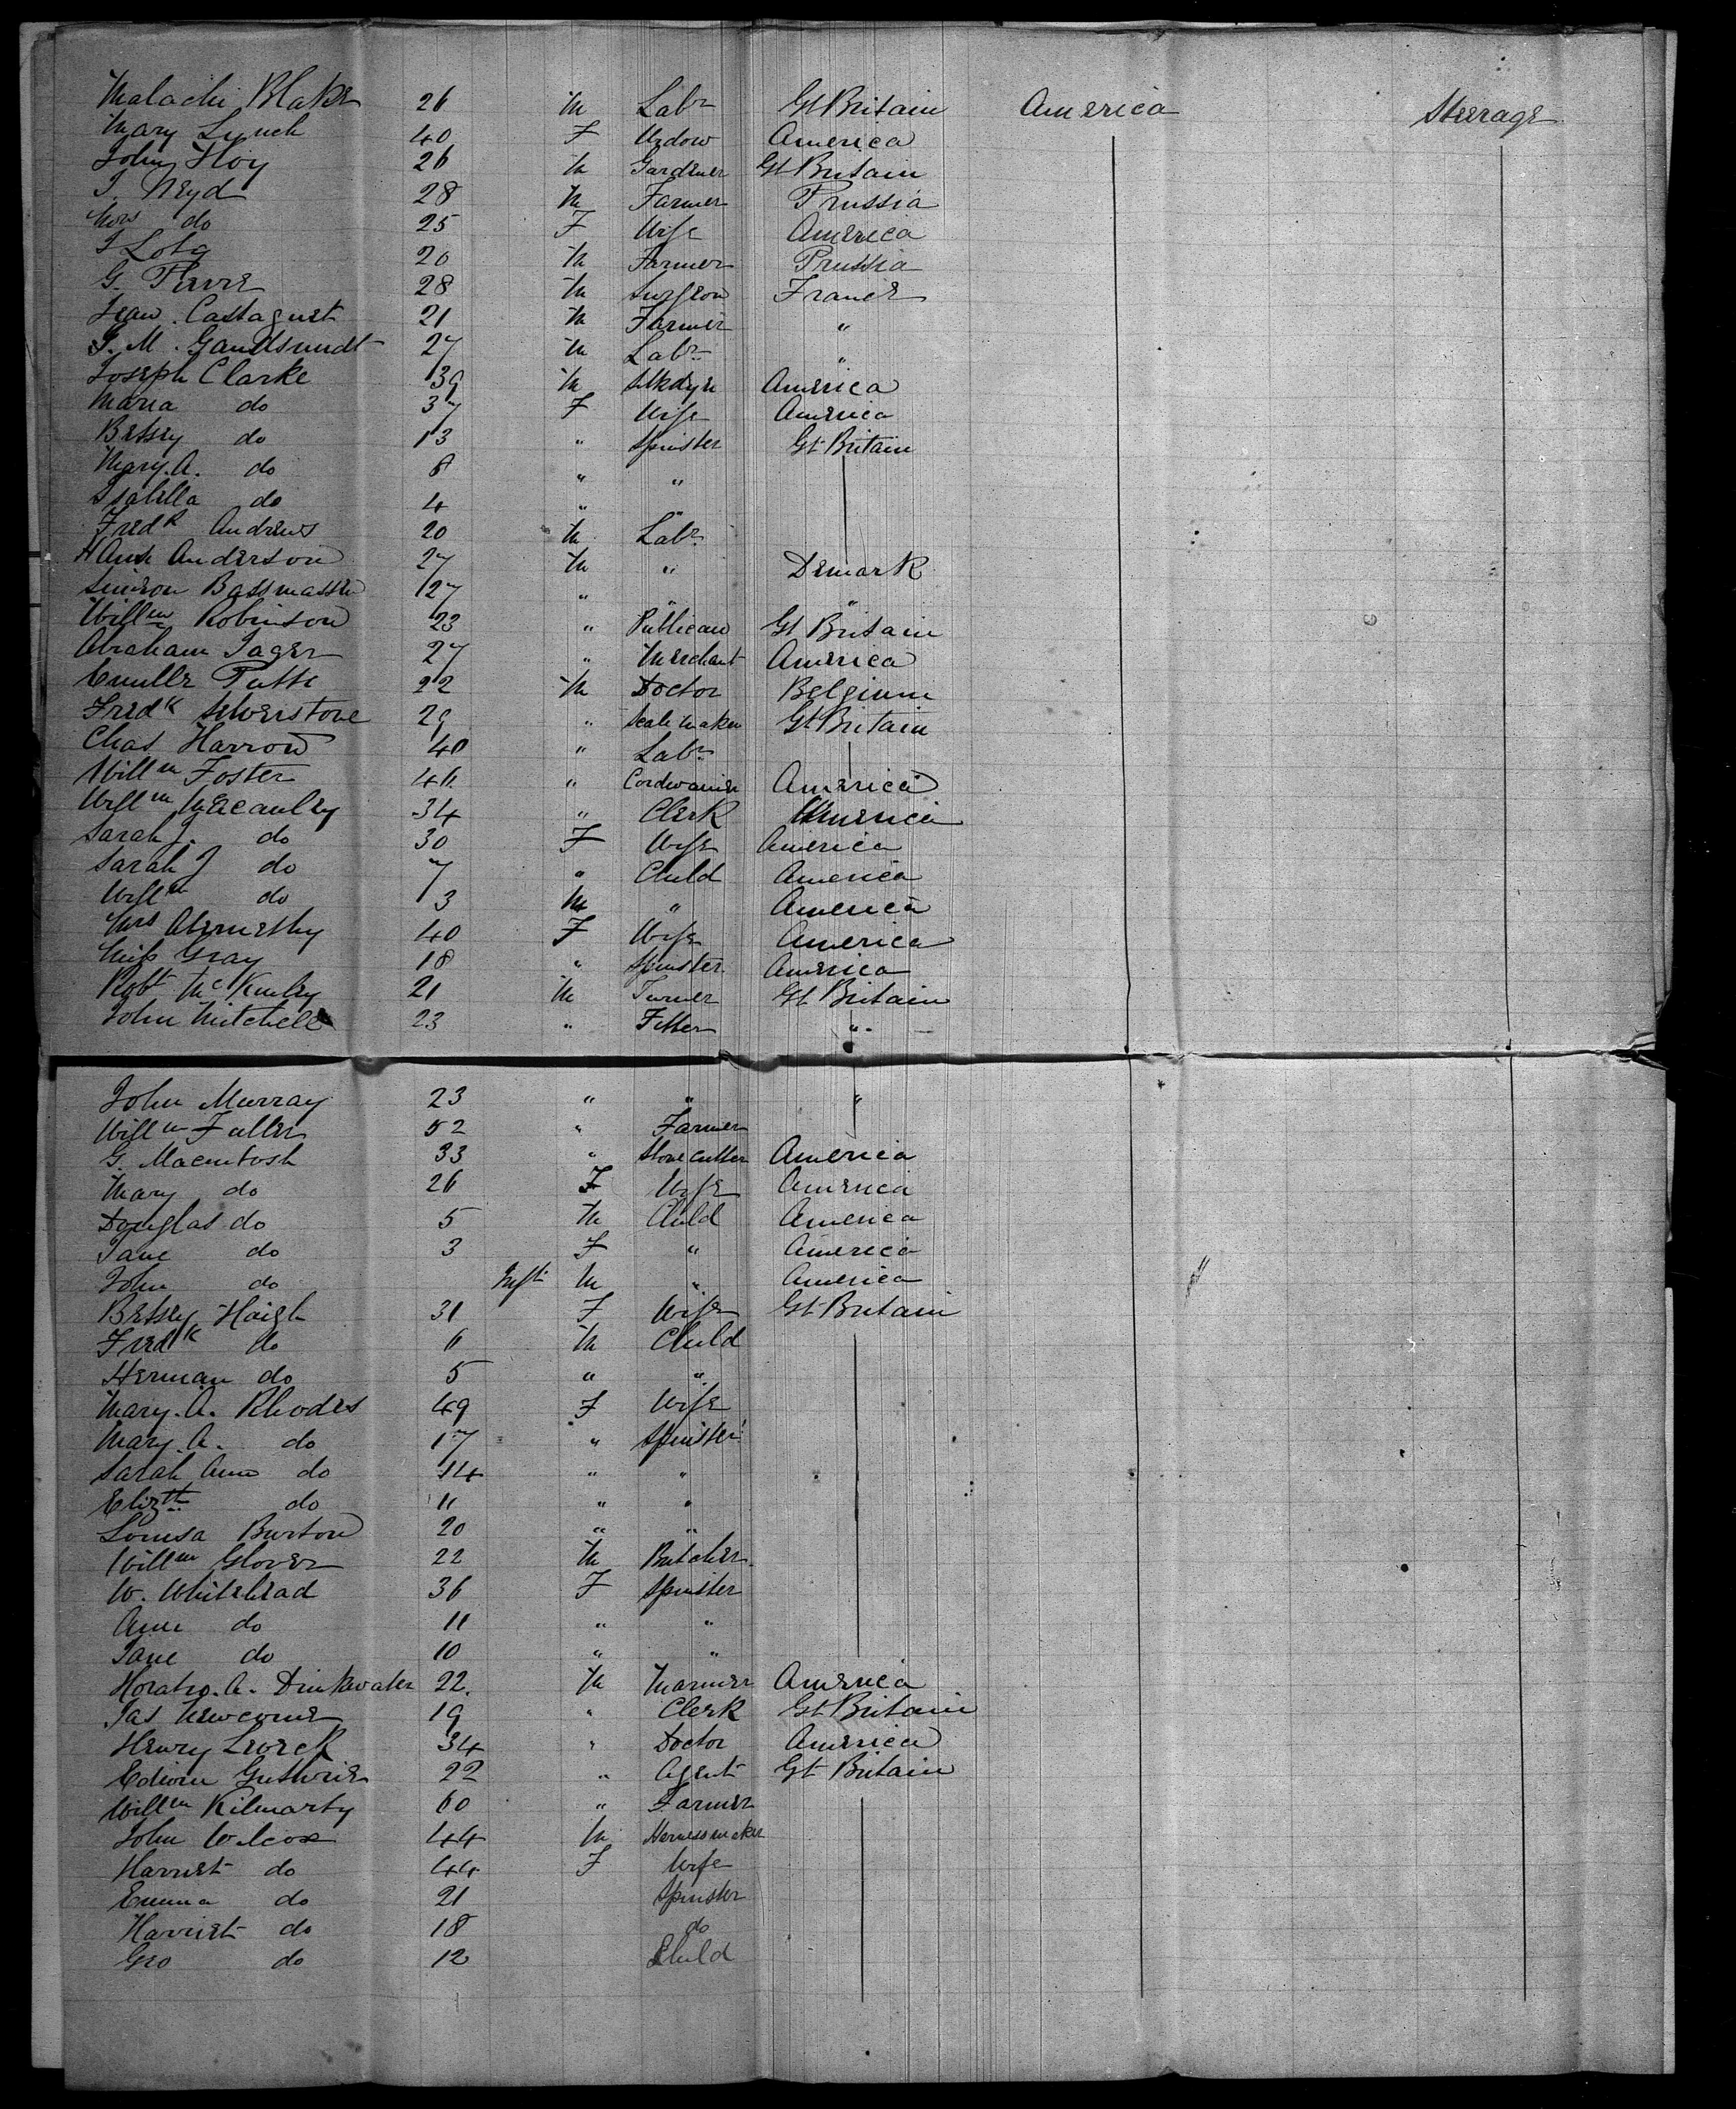 Malachi Blake 26 M Labr Gt Britain America Steerage
Mary Lynch 40 F Widow America
John Hoy 26 M Gardener Gt Britain
28 M Farmer Prussia
Mrs do 25 F Wife America
20 M Farmer Prussia
G. 28 M Surgeon France
Jean Castagnet 21 M Farmer "
J. M. 27 M Labr "
Joseph Clarke 39 M America
Maria do 37 F Wife America
Betsey do 13 " Spinster Gt Britain
Mary. A. do 8 " "
Isabella do 4 " "
Fredk Andrews 20 M Labr
Hans Anderson 27 M " Demark
Simeon 27 " " "
Willm Robinson 23 " Publican Gt Britain
Abraham Jager 27 " Merchant America
22 M Doctor Belgium
Fredk Silverstone 29 " Scale maker Gt Britain
Chas Harrod 40 " Labr
Willm Foster 46 " Cordwainer America
Willm Macauley 34 " Clerk America
Sarah J. do 30 F Wife America
Sarah J do 7 " Child America
Willm do 3 M " America
Mrs Abernethy 40 F Wife America
Miss Gray 18 " Spinster America
Robt McKinley 21 M Turner Gt Britain
John Mitchell 23 " Fitter "
John Murray 23 " " "
Willm Fuller 52 " Farmer
G. Macintosh 33 " Stonecutter America
Mary do 26 F Wife America
Douglas do 5 M Child America
Jane do 3 F " America
John do Inft M " America
Betsey Haigh 31 F Wife Gt Britain
Fredk do 6 M Child
Herman do 5 " "
Mary. A. Rhodes 49 F Wife
Mary. A. do 17 " Spinster
Sarah Ann do 14 " "
Elizth do 11 " "
Louisa Burton 20 " "
Willm Glover 22 M Butcher
W. Whitehead 36 F Spinster
Ann do 11 " "
Jane do 10 " "
Horatio. A. Drinkwater 22 M Mariner America
Jas Newcome 19 " Clerk Gt Britain
Henry 34 " Doctor America
Edwin Guthrie 22 " Agent Gt Britain
Willm Kilmarty 60 " Farmer
John Wilcox 44 M Harnessmaker
Harriet do 44 F Wife
Emma do 21 Spinster
Harriet do 18 do
Geo do 12 Child